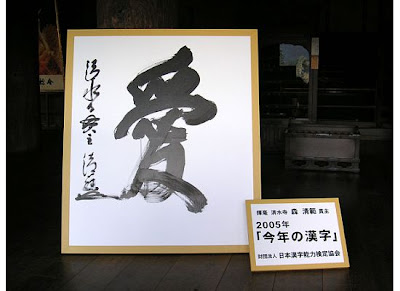 愛
清水寺貫主 清範
揮毫 清水寺 森 清範 貫主
2005年
「今年の漢字」
財団法人 日本漢字能力検定協会